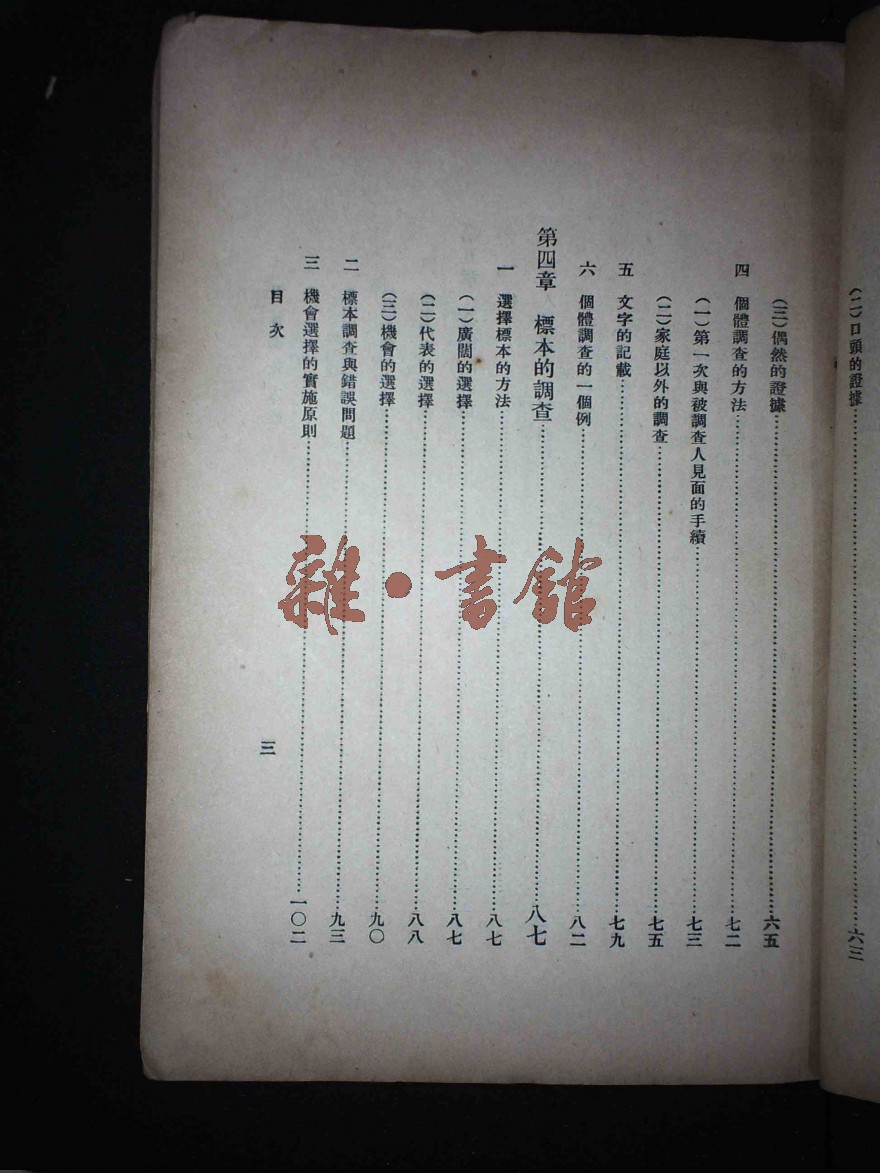 （二）口頭的證據……六三
（三）偶然的證據……六五
四　個體調查的方法……七二
（一）第一次與被調查人見面的手續……七三
（二）家庭以外的調查……七五
五　文字的記載……七九
六　個體調查的一個例……八二
第四章　標本的調查……八七
一　選擇標本的方法……八七
（一）廣闊的選擇……八七
（二）代表的選擇……八八
（三）機會的選擇……九〇
二　標本調查與錯誤問題……九三
三　機會選擇的實施原則……一〇二
目次
三
雜·書館